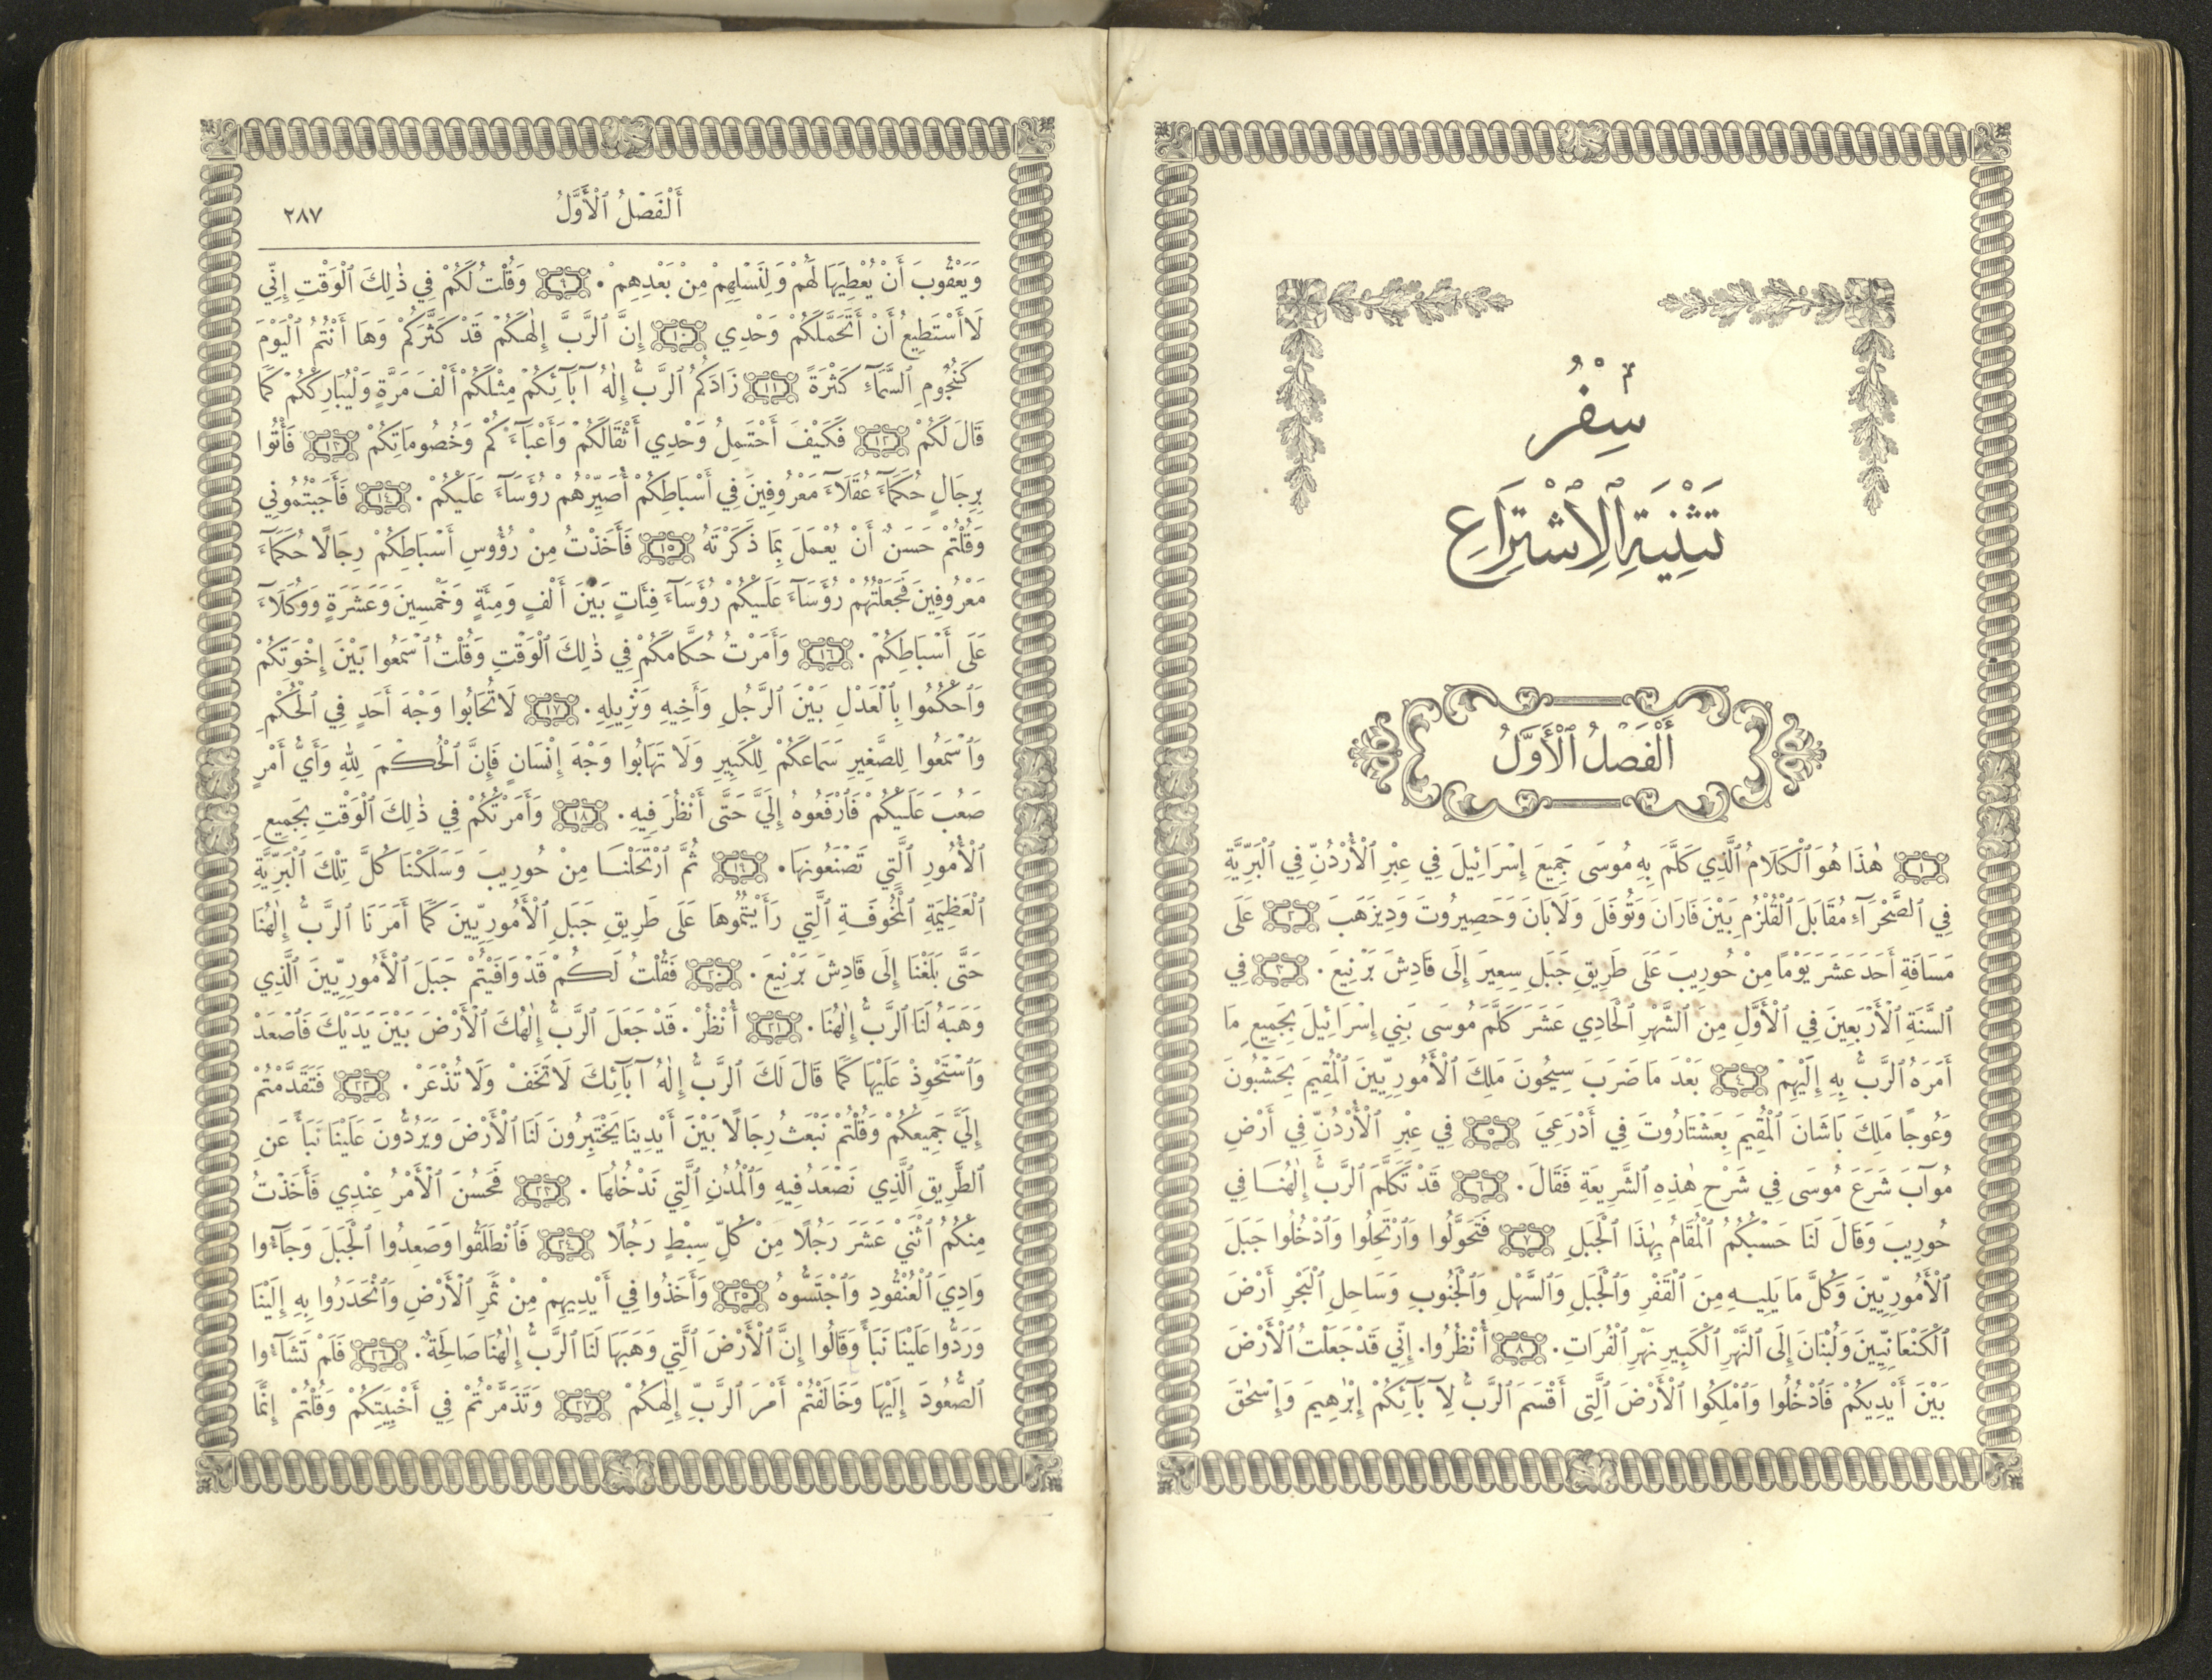 سِفْرُ
تَثْنِيَةِ ٱلِٱشْتِرَاعِ
أَلْفَصْلُ ٱلْأَوَّلُ
١ هٰذَا هُوَ ٱلْكَلَامُ ٱلَّذِي كَلَّمَ بِهِ مُوسَى جَمِيعَ إِسْرَائِيلَ فِي عِبْرِ ٱلْأُرْدُنِّ فِي ٱلْبَرِّيَّةِ
فِي ٱلصَّحْرَآءِ مُقَابَلَ ٱلْقُلْزُمِ بَيْنَ فَارَانَ وَتُوفَلَ وَلَابَانَ وَحَصِيرُوتَ وَدِيزَهَبَ ٢ عَلَى
مَسَافَةِ أَحَدَ عَشَرَ يَوْمًا مِنْ حُورِيبَ عَلَى طَرِيقِ جَبَلِ سِعِيرَ إِلَى قَادِشَ بَرْنِيعَ. ٣ فِي
ٱلسَّنَةِ ٱلْأَرْبَعِينَ فِي ٱلْأَوَّلِ مِنَ ٱلشَّهْرِ ٱلْحَادِي عَشَرَ كَلَّمَ مُوسَى بَنِي إِسْرَائِيلَ بِجَمِيعِ مَا
أَمَرَهُ ٱلرَّبُّ بِهِ إِلَيْهِمْ ٤ بَعْدَ مَا ضَرَبَ سِيحُونَ مَلِكَ ٱلْأَمُورِيِّينَ ٱلْمُقِيمَ بِحَشْبُونَ
وَعُوجًا مَلِكَ بَاشَانَ ٱلْمُقِيمَ بِعَشْتَارُوتَ فِي أَدْرَعِيَ ٥ فِي عِبْرِ ٱلْأُرْدُنِّ فِي أَرْضِ
مُوآبَ شَرَعَ مُوسَى فِي شَرْحِ هٰذِهِ ٱلشَّرِيعَةِ فَقَالَ. ٦ قَدْ تَكَلَّمَ ٱلرَّبُّ إِلٰهُنَا فِي
حُورِيبَ وَقَالَ لَنَا حَسْبُكُمُ ٱلْمُقَامُ بِهٰذَا ٱلْجَبَلِ ٧ فَتَحَوَّلُوا وَٱرْتَحِلُوا وَٱدْخُلُوا جَبَلَ
ٱلْأَمُورِيِّينَ وَكُلَّ مَا يَلِيهِ مِنَ ٱلْقَفْرِ وَٱلْجَبَلِ وَٱلسَّهْلِ وَٱلْجَنُوبِ وَسَاحِلِ ٱلْبَحْرِ أَرْضَ
ٱلْكَنْعَانِيِّينَ وَلُبْنَانَ إِلَى ٱلنَّهْرِ ٱلْكَبِيرِ نَهْرِ ٱلْفُرَاتِ. ٨ أُنْظُرُوا. إِنِّي قَدْ جَعَلْتُ ٱلْأَرْضَ
بَيْنَ أَيْدِيكُمْ فَٱدْخُلُوا وَٱمْلِكُوا ٱلْأَرْضَ ٱلَّتِى أَقْسَمَ ٱلرَّبُّ لِآبَآئِكُمْ إِبْرٰهِيمَ وَإِسْحٰقَ
أَلْفَصْلُ ٱلْأَوَّلُ ٢٨٧
وَيَعْقُوبَ أَنْ يُعْطِيَهَا لَهُمْ وَلِنَسْلِهِمْ مِنْ بَعْدِهِمْ. ٩ وَقُلْتُ لَكُمْ فِي ذٰلِكَ ٱلْوَقْتِ إِنِّي
لَا أَسْتَطِيعُ أَنْ أَتَحَمَّلَكُمْ وَحْدِي ١٠ إِنَّ ٱلرَّبَّ إِلٰهَكُمْ قَدْ كَثَّرَكُمْ وَهَا أَنْتُمُ ٱلْيَوْمَ
كَنُجُومِ ٱلسَّمَآءِ كَثْرَةً ١١ زَادَكُمُ ٱلرَّبُّ إِلٰهُ آبَآئِكُمْ مِثْلَكُمْ أَلْفَ مَرَّةٍ وَلْيُبَارِكْكُمْ كَمَا
قَالَ لَكُمْ ١٢ فَكَيْفَ أَحْتَمِلُ وَحْدِي أَثْقَالَكُمْ وَأَعْبَآءَكُمْ وَخُصُومَاتِكُمْ ١٣ فَأْتُوا
بِرِجَالٍ حُكَمَآءَ عُقَلَآءَ مَعْرُوفِينَ فِي أَسْبَاطِكُمْ أُصَيِّرْهُمْ رُؤَسَآءَ عَلَيْكُمْ. ١٤ فَأَجَبْتُمُونِي
وَقُلْتُمْ حَسَنٌ أَنْ يُعْمَلَ بِمَا ذَكَرْتَهُ ١٥ فَأَخَذْتُ مِنْ رُؤُوسِ أَسْبَاطِكُمْ رِجَالًا حُكَمَآءَ
مَعْرُوفِينَ فَجَعَلْتُهُمْ رُؤَسَآءَ عَلَيْكُمْ رُؤَسَآءَ فِئَاتٍ بَيْنَ أَلْفٍ وَمِئَةٍ وَخَمْسِينَ وَعَشَرَةٍ وَوُكَلَآءَ
عَلَى أَسْبَاطِكُمْ. ١٦ وَأَمَرْتُ حُكَّامَكُمْ فِي ذٰلِكَ ٱلْوَقْتِ وَقُلْتُ ٱسْمَعُوا بَيْنَ إِخْوَتِكُمْ
وَٱحْكُمُوا بِٱلْعَدْلِ بَيْنَ ٱلرَّجُلِ وَأَخِيهِ وَنَزِيلِهِ. ١٧ لَا تُحَابُوا وَجْهَ أَحَدٍ فِي ٱلْحُكْمِ
وَٱسْمَعُوا لِلصَّغِيرِ سَمَاعَكُمْ لِلْكَبِيرِ وَلَا تَهَابُوا وَجْهَ إِنْسَانٍ فَإِنَّ ٱلْحُكْمَ لِلّٰهِ وَأَيُّ أَمْرٍ
صَعُبَ عَلَيْكُمْ فَٱرْفَعُوهُ إِلَيَّ حَتَّى أَنْظُرَ فِيهِ. ١٨ وَأَمَرْتُكُمْ فِي ذٰلِكَ ٱلْوَقْتِ بِجَمِيعِ
ٱلْأُمُورِ ٱلَّتِي تَصْنَعُونَهَا. ١٩ ثُمَّ ٱرْتَحَلْنَا مِنْ حُورِيبَ وَسَلَكْنَا كُلَّ تِلْكَ ٱلْبَرِّيَّةِ
ٱلْعَظِيمَةِ ٱلْمَخُوفَةِ ٱلَّتِي رَأَيْتُمُوهَا عَلَى طَرِيقِ جَبَلِ ٱلْأَمُورِيِّينَ كَمَا أَمَرَنَا ٱلرَّبُّ إِلٰهُنَا
حَتَّى بَلَغْنَا إِلَى قَادِشَ بَرْنِيعَ. ٢٠ فَقُلْتُ لَكُمْ قَدْ وَافَيْتُمْ جَبَلَ ٱلْأَمُورِيِّينَ ٱلَّذِي
وَهَبَهُ لَنَا ٱلرَّبُّ إِلٰهُنَا. ٢١ أُنْظُرْ. قَدْ جَعَلَ ٱلرَّبُّ إِلٰهُكَ ٱلْأَرْضَ بَيْنَ يَدَيْكَ فَٱصْعَدْ
وَٱسْتَحْوِذْ عَلَيْهَا كَمَا قَالَ لَكَ ٱلرَّبُّ إِلٰهُ آبَآئِكَ لَا تَخَفْ وَلَا تُذْعَرْ. ٢٢ فَتَقَدَّمْتُمْ
إِلَيَّ جَمِيعُكُمْ وَقُلْتُمْ نَبْعَثُ رِجَالًا بَيْنَ أَيْدِينَا يَخْتَبِرُونَ لَنَا ٱلْأَرْضَ وَيَرُدُّونَ عَلَيْنَا نَبَأً عَنِ
ٱلطَّرِيقِ ٱلَّذِي نَصْعَدُ فِيهِ وَٱلْمُدُنِ ٱلَّتِي نَدْخُلُهَا. ٢٣ فَحَسُنَ ٱلْأَمْرُ عِنْدِي فَأَخَذْتُ
مِنْكُمُ ٱثْنَيْ عَشَرَ رَجُلًا مِنْ كُلِّ سِبْطٍ رَجُلًا ٢٤ فَٱنْطَلَقُوا وَصَعِدُوا ٱلْجَبَلَ وَجَآءُوا
وَادِيَ ٱلْعُنْقُودِ وَٱجْتَسُّوهُ ٢٥ وَأَخَذُوا فِي أَيْدِيهِمْ مِنْ ثَمَرِ ٱلْأَرْضِ وَٱنْحَدَرُوا بِهِ إِلَيْنَا
وَرَدُّوا عَلَيْنَا نَبَأً وَقَالُوا إِنَّ ٱلْأَرْضَ ٱلَّتِي وَهَبَهَا لَنَا ٱلرَّبُّ إِلٰهُنَا صَالِحَةٌ. ٢٦ فَلَمْ تَشَآءُوا
ٱلصُّعُودَ إِلَيْهَا وَخَالَفْتُمْ أَمْرَ ٱلرَّبِّ إِلٰهِكُمْ ٢٧ وَتَذَمَّرْتُمْ فِي أَخْبِيَتِكُمْ وَقُلْتُمْ إِنَّمَا